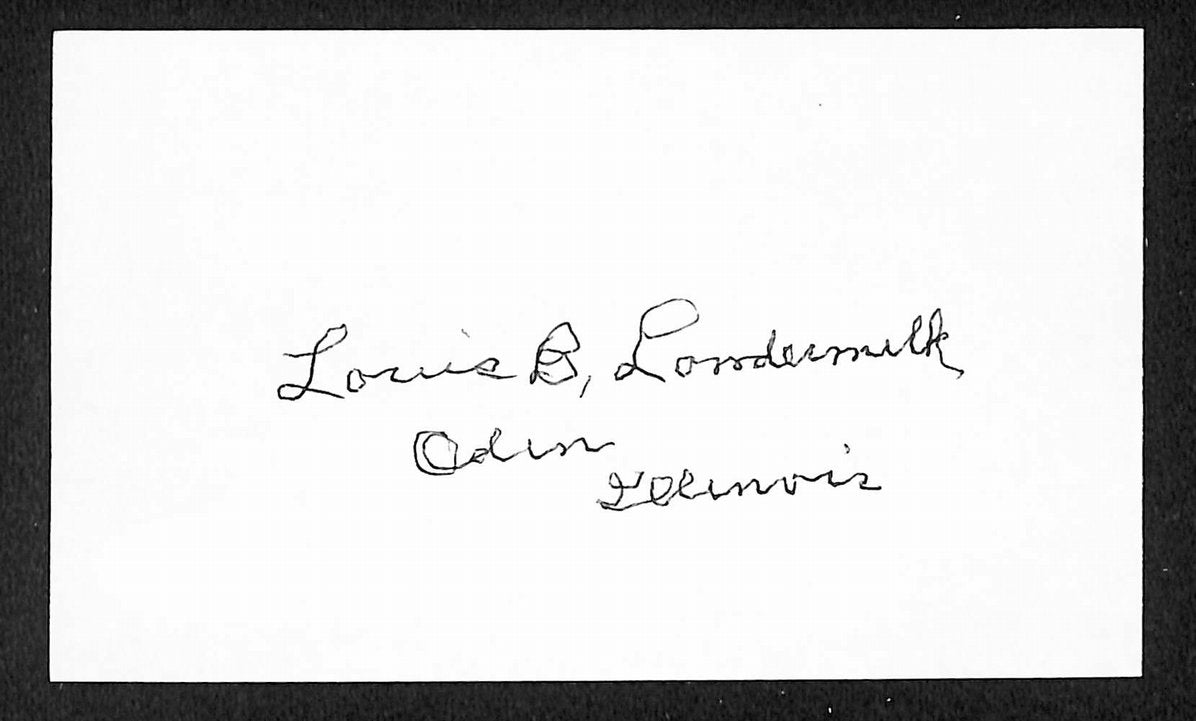 Louis B, Lowdermilk
Odin
Illinois